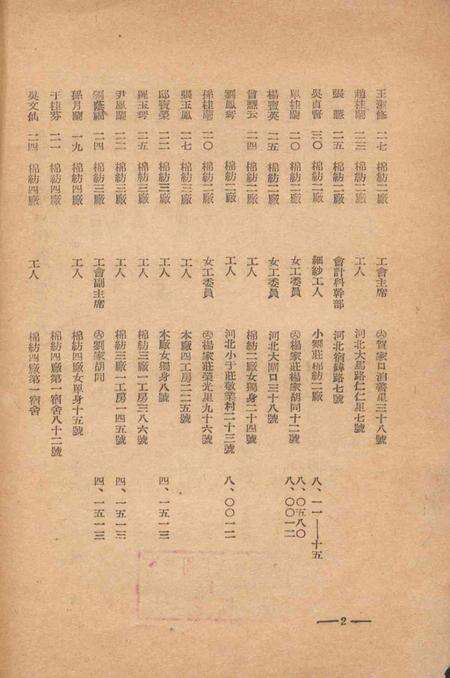 王淑修 二七 棉紡二廠 工會主席 ㊅賀家口 三十八號
趙桂蘭 二三 棉紡二廠 工人 河北大馬路仁仁里七號
張 二五 棉紡二廠 會計科幹部 河北 路七號
吳貞智 三〇 棉紡二廠 細紗工人 小劉莊棉紡二廠 八、一一—十五
桂蘭 二〇 棉紡二廠 女工委員 ㊅楊家莊楊家胡同十二號 八、〇五八〇 八、〇〇一二
楊寶英 二五 棉紡二廠 女工委員 河北大關口三十八號
曾 云 二四 棉紡二廠 工人 棉紡二廠女獨身二十四號
劉鳳琴 棉紡二廠 工人 河北小于莊敬業村二十三號 八、〇〇一二
孫桂蘭 二〇 棉紡二廠 女工委員 ㊅楊家莊 光里九十六號
張玉鳳 二七 棉紡三廠 工人 本廠四工房二二五號
邱寶榮 二二 棉紡三廠 工人 本廠女獨身八號 四、一五一三
玉琴 二五 棉紡三廠 工人 棉紡三廠一工房三八六號
尹鳳蘭 二二 棉紡三廠 工人 棉紡三廠一工房一四五號 四、一五一三
二四 棉紡三廠 工會副主席 ㊅劉家胡同 四、一五一三
孫月蘭 一九 棉紡四廠 工人 棉紡四廠女單身十五號
于桂芬 二二 棉紡四廠 棉紡四廠第一宿舍八十二號
吳文仙 二四 棉紡四廠 工人 棉紡四廠第一宿舍
—2—